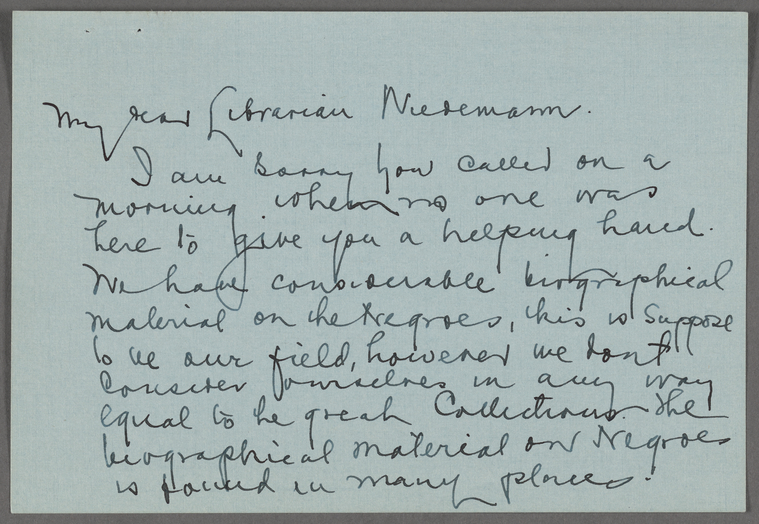 My dear Librarian Niedemann.
I am sorry you called on a
morning when no one was
here to give you a helping hand.
We have considerable biographical
material on the Negroes, this is suppose
to be our field, however we dont
consider ourselves in any way
equal to the great Collections. The
biographical material on Negroes
is found in many places.